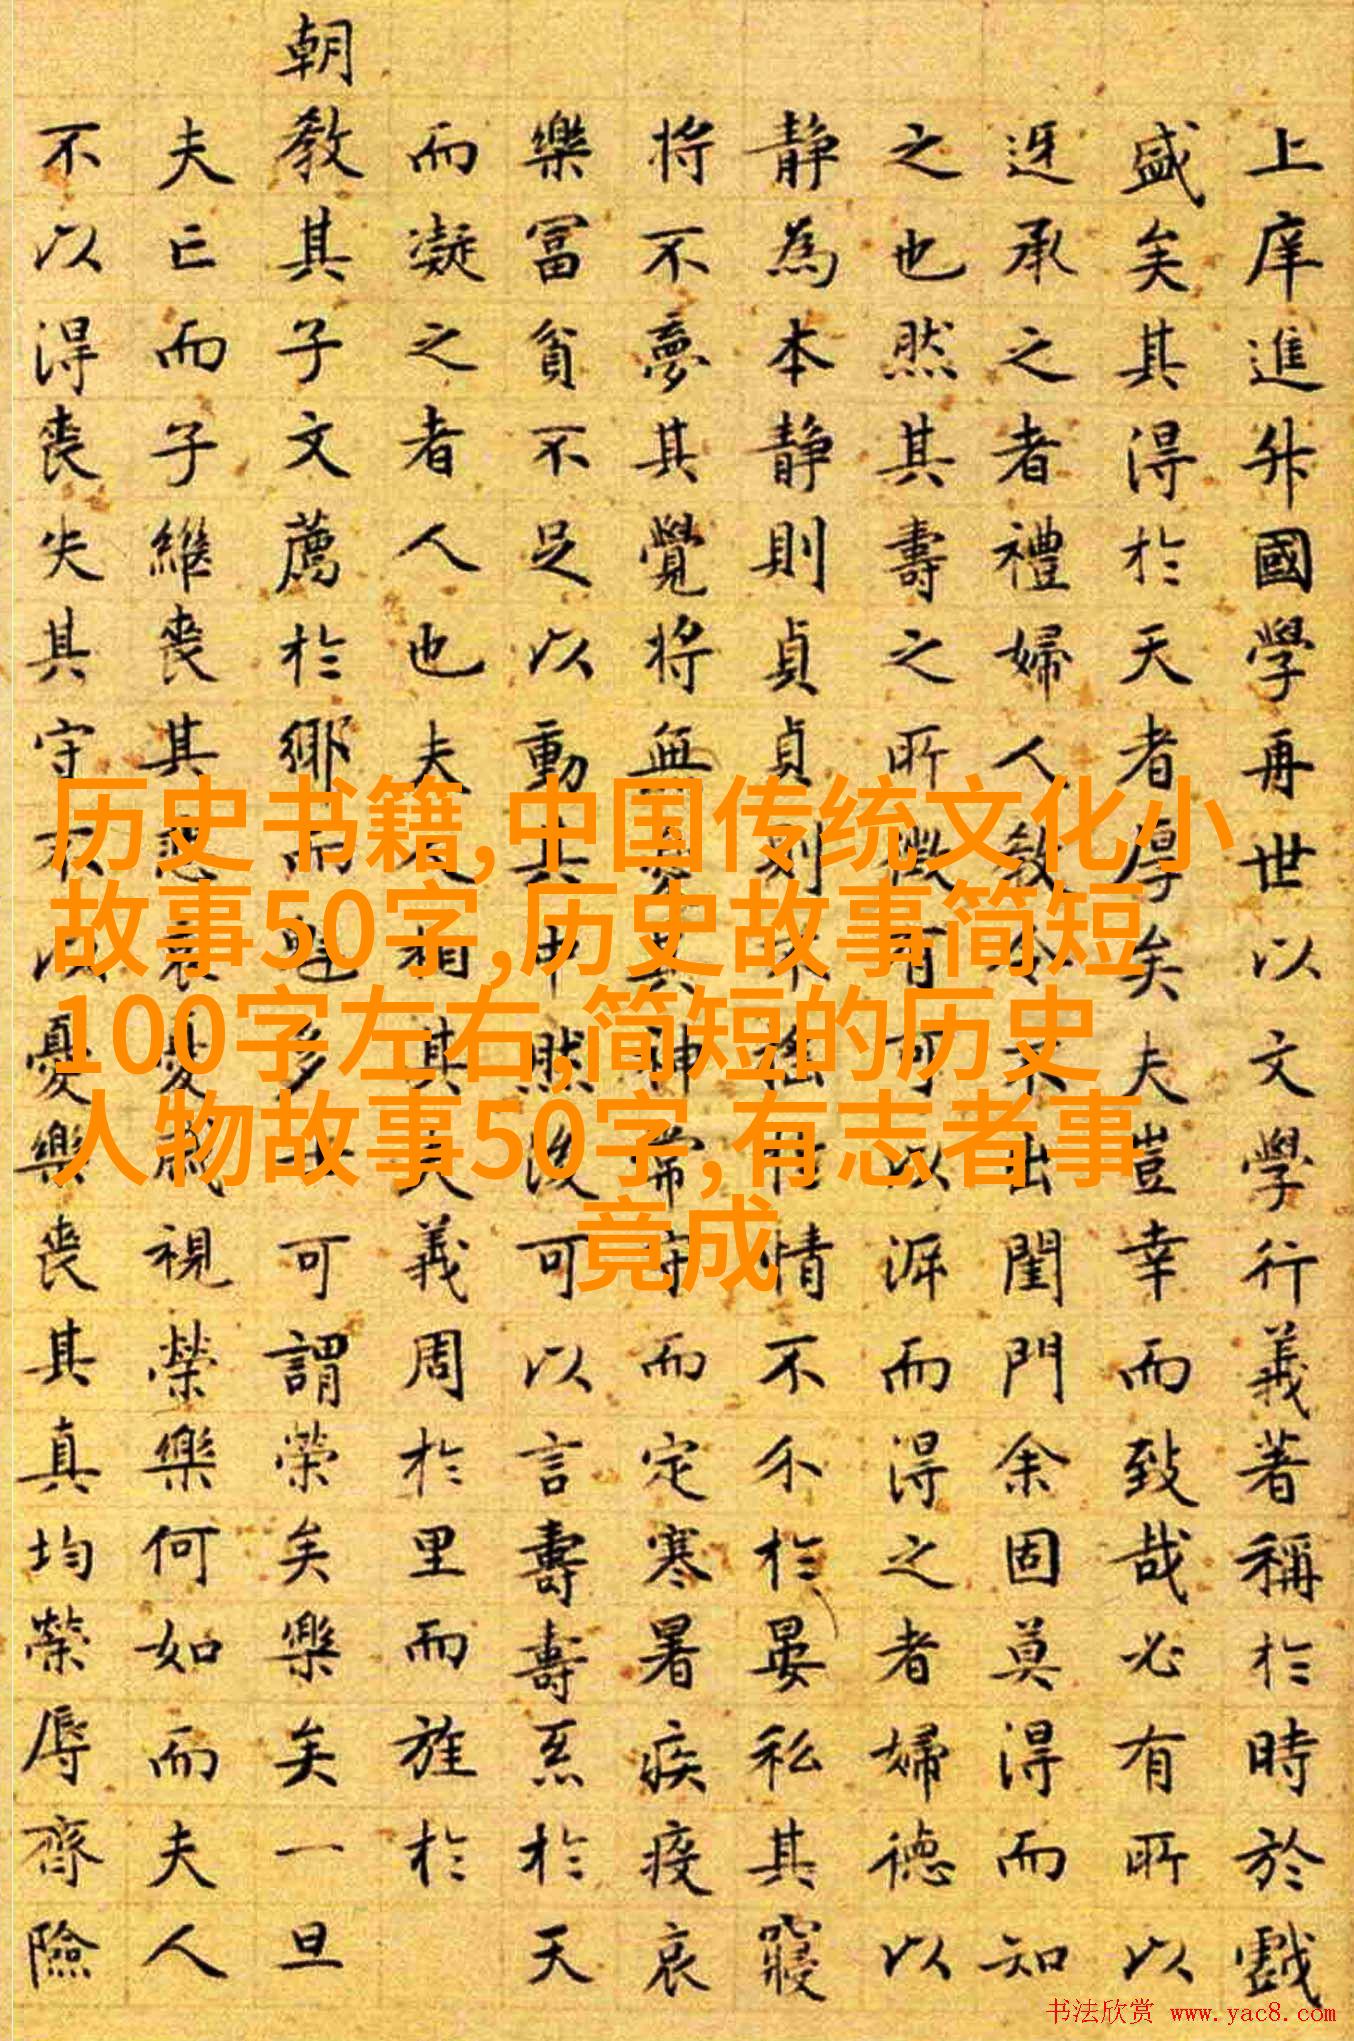 上庠進升國學再世以文學行義著稱於時於戲
盛矣其得於天者厚矣夫豈幸而致哉必有所以
迓承之者禮婦人教令不出閨門余固莫得而知
之也然其壽之所徵有可以泝而得之者婦德以
静為本静則貞貞則不搖性情不介於晏私其寢
將不夢其覺將無憂其神常守而定寒暑疾疫哀
樂冨貧不足以動其中然後可以言壽壽系於天
而凝之者人也夫人相其夫義周於里而旌於
朝教其子文薦於鄉而進多可謂榮矣樂矣一旦
夫亡而子繼喪其悲哀憂戚視榮樂何如而夫人
不以得喪失其守不以憂樂喪其真均榮辱齊險
历史书籍,中国传统文化小
故事50字,历史故事简短
100字左右,简短的历史
人物故事50字,有志者事
竟成
书法欣赏 www.yac8.com